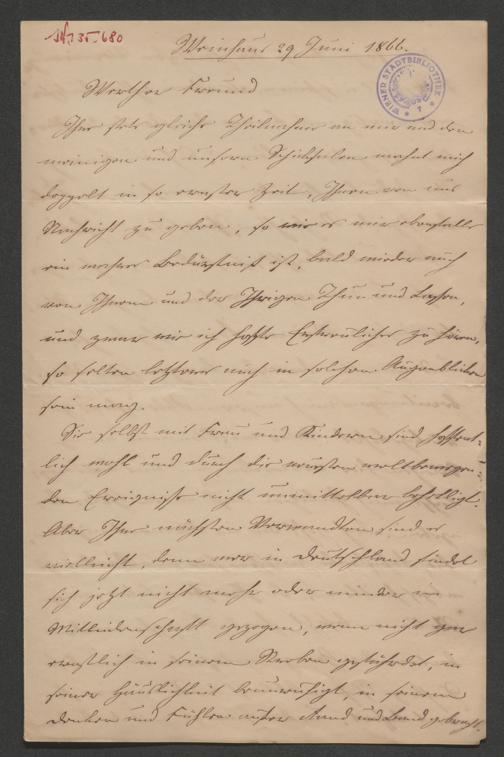 Weinhaus 29 Juni 1866.
Werther Freund
Ihre stets gleiche Theilnahme an mir und den
meinigen und unsern Schicksalen mahnt mich
doppelt in so ernster Zeit, Ihnen von uns
Nachricht zu geben, so wie es mir ebenfalls
ein wahres Bedürfniß ist, bald wieder auch
von Ihrem und der Ihrigen Thun und Lassen,
und zwar wie ich hoffe Erfreuliches zu hören,
so selten letzteres auch in solchen Augenblicken
sein mag.
Sie selbst mit Frau und Kindern sind hoffent-
lich wohl und durch die neuesten weltbewegen-
den Ereignisse nicht unmittelbar behelligt.
Aber Ihre nächsten Verwandten sind es
vielleicht, denn wer in Deutschland findet
sich jetzt nicht mehr oder minder in
Mitleidenschaft gezogen, wenn nicht gar
ernstlich in seinem Streben gefährdet, in
seiner Häuslichkeit beunruhigt, in seinem
Denken und Fühlen außer Rand und Band gebracht.
WIENER STADTBIBLIOTHEK